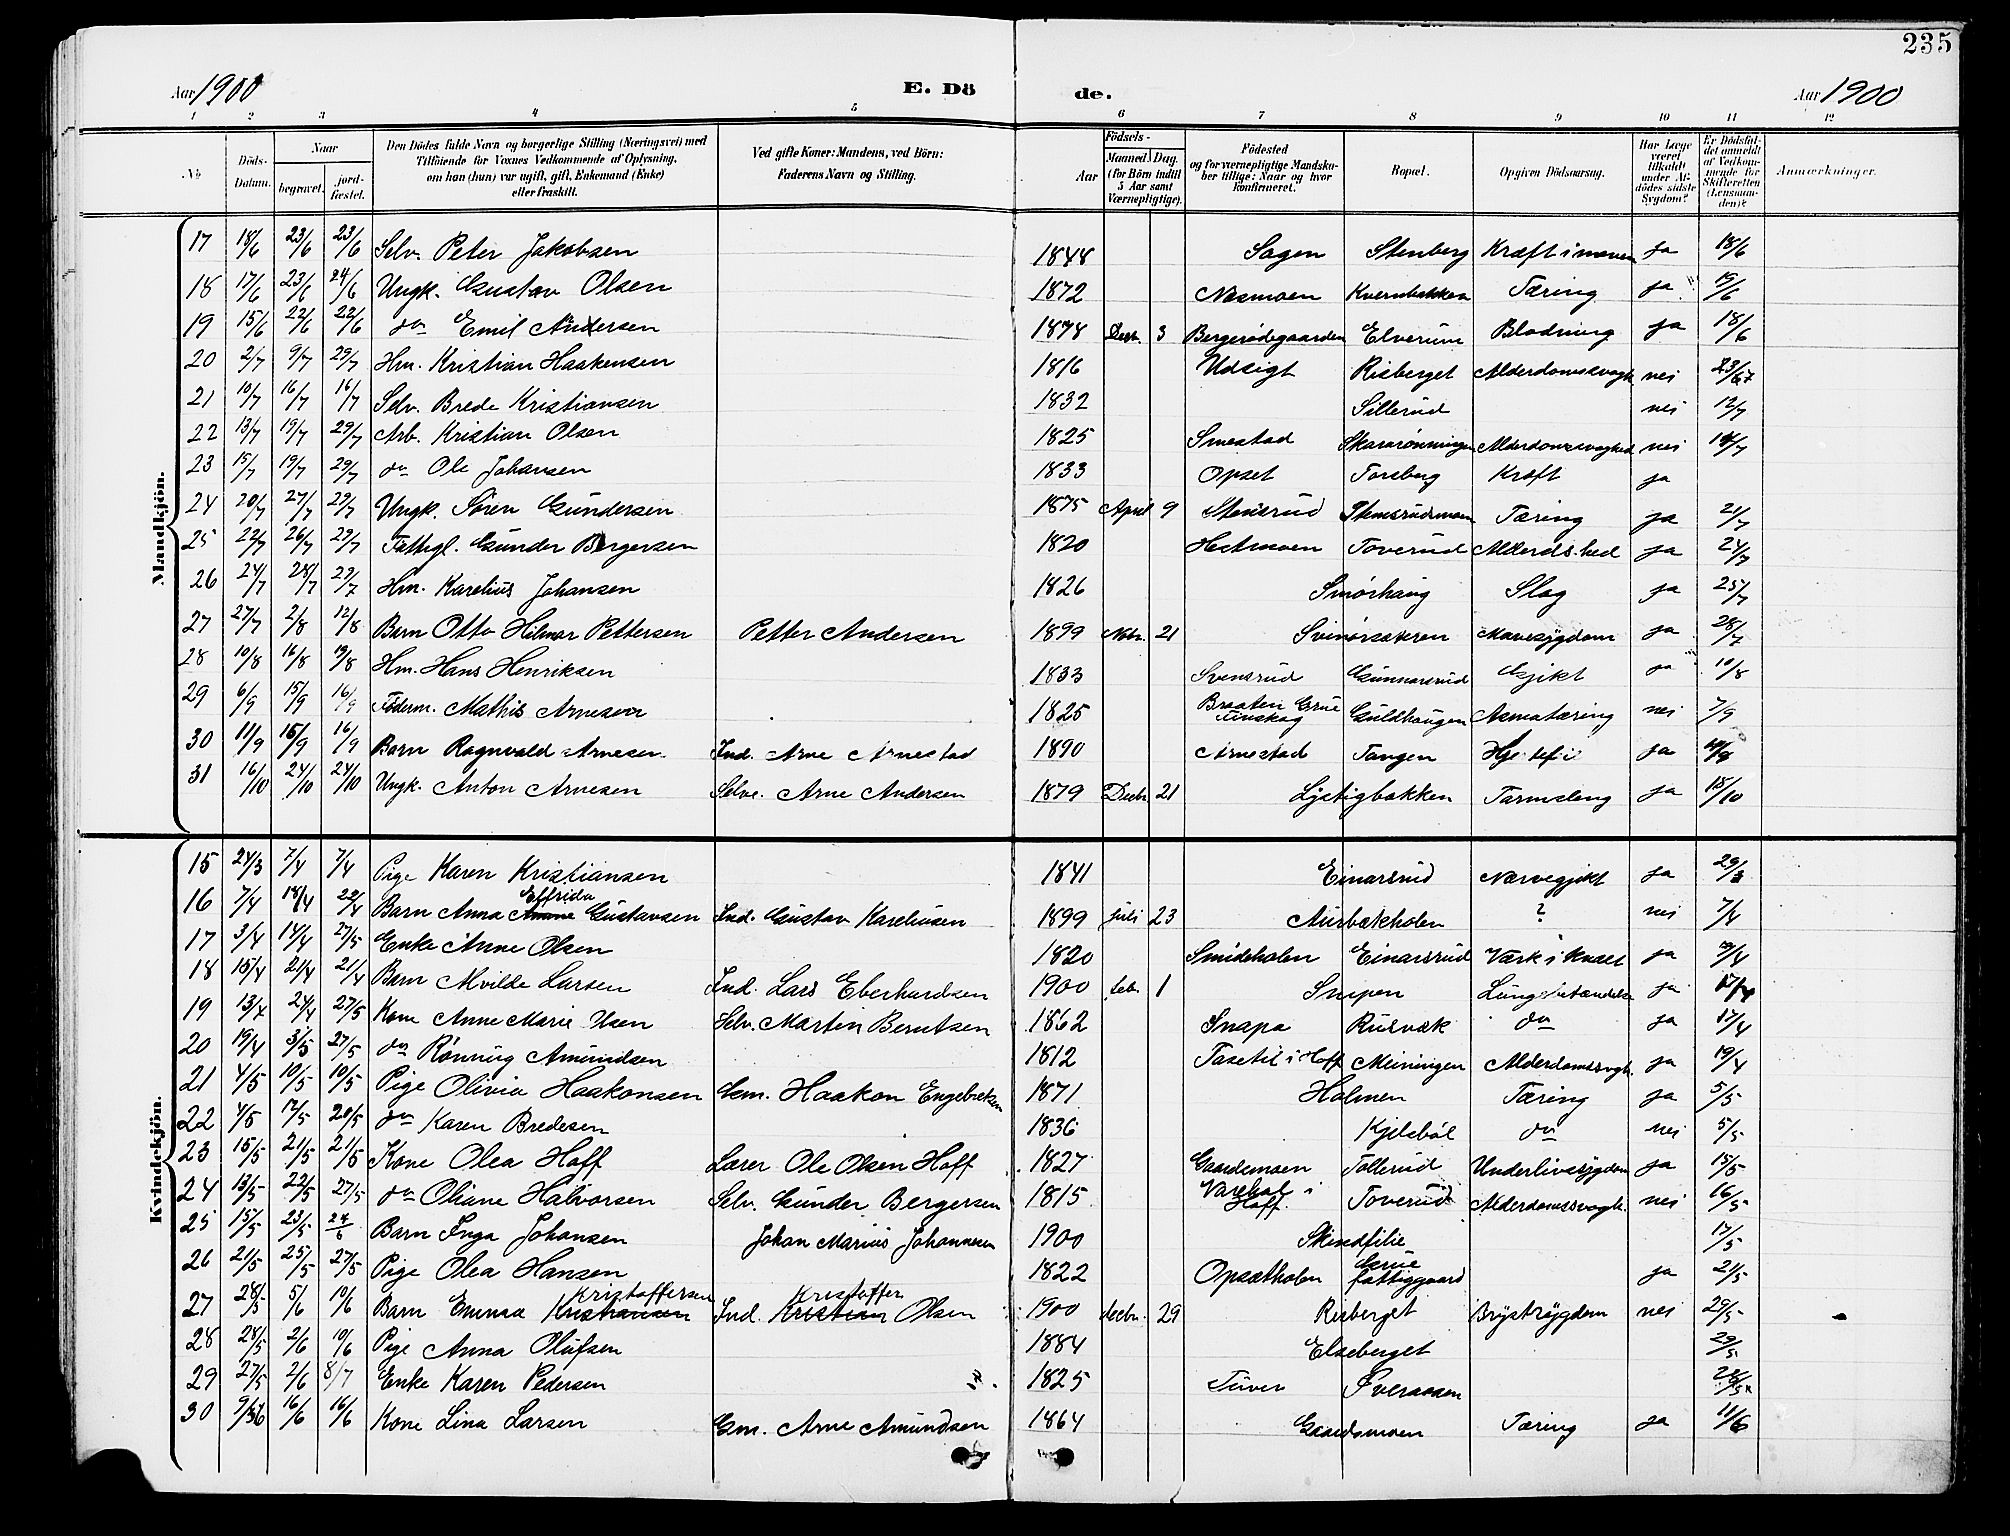 235
Aar 1900 E. Dö de. Aar 1900
1 2 3 4 5 6 7 8 9 10 11 12
№ Döds-Datum. Naar begravet. jord-fæstet. Den Dödes fulde Navn og borgerlige Stilling (Næringsvei) med Tilföiende for Voxnes Vedkommende af Oplysning, om han (hun) var ugift, gift, Enkemand (Enke) eller fraskilt. Ved gifte Koner: Mandens, ved Börn: Faderens Navn og Stilling. Födsels- Aar Maaned Dag. (for Börn indtil 5 Aar samt Værnepligtige). Födested og for værnepligtige Mandskaber tillige: Naar og hvor konfirmeret. Bopæl. Opgiven Dödsaarsag. Har Læge været tilkaldt under Afdödes sidste Sygdom? Er Dödsfaldet anmeldt af Vedkommende for Skifteretten (Lensmanden)? Anmærkninger.
Mandkjön.
17 18/6 23/6 23/6 Selv. Peter Jakobsen 1848 Sagen Stenberg Kræft i maven ja 18/6
18 17/6 23/6 24/6 Ungk. Gustav Olsen 1872 Næsmoen Kvernbakken Tæring ja 19/6
19 15/6 22/6 22/6 do Emil Andersen 1878 Decbr. 3 Bergerødegaarden Elverum Blodning ja 18/6
20 2/7 9/7 29/7 Hm. Kristian Haakensen 1816 Udsigt Risberget Alderdomssvagh. nei 23/7
21 10/7 16/7 16/7 Selv. Brede Kristiansen 1832 Sillerud nei 12/7
22 13/7 19/7 29/7 Arb. Kristian Olsen 1825 Smestad Skararønningen Alderdomssvaghed nei 14/7
23 15/7 19/7 29/7 do Ole Johansen 1833 Opset Torsberg Kræft ja
24 20/7 27/7 29/7 Ungk. Søren Gundersen 1875 April 9 Stensrud Stemsrudsmoen Tæring ja 21/7
25 22/7 26/7 29/7 Fattigl. Gunder Bergersen 1820 Hetmoen Toverud Alderds.hed ja 24/7
26 24/7 28/7 29/7 Hm. Karelius Johansen 1826 Smørhaug Slag ja 25/7
27 27/7 2/8 12/8 Barn Otto Hilmar Pettersen Petter Andersen 1899 Novbr. 21 Svinørsæteren Mavesygdom ja 28/7
28 10/8 16/8 19/8 Hm. Hans Henriksen 1833 Svensrud Gunnarsrud Gjikt ja 10/8
29 6/9 15/9 16/9 Föderm. Mathis Arnesen 1825 Braaten Grue Finskog Guldhaugen Asmatæring nei 7/9
30 11/9 15/9 16/9 Barn Ragnvald Arnesen Ind. Arne Arnestad 1890 Arnestad Tangen ja
31 16/10 24/10 24/10 Ungk. Anton Arnesen Selve. Arne Andersen 1879 Decbr 21 Lystigbakken Tarmslyng ja 18/10
Kvindekjön.
15 24/3 7/4 7/4 Pige Karen Kristiansen 1841 Einarsrud Nervegjikt ja 29/3
16 7/4 18/4 22/4 Barn Anna Effrida Gustavsen Ind. Gustav Kareliusen 1899 Juli 23 Aurbækholen ? nei 7/4
17 3/4 14/4 27/5 Enke Anne Olsen 1820 Smideholen Einarsrud Værk i knæet ja 9/4
18 15/4 21/4 21/4 Barn Mvilde Larsen Ind. Lars Eberhardsen 1900 Feb. 1 Snipen Lungebetændelse ja 17/4
19 13/4 24/4 27/5 Kone Anne Marie Usen Selv. Martin Berntsen 1862 Snapa Rusvæk do ja 17/4
20 19/4 3/5 27/5 do Rønnug Amundsen 1812 Taxetil i Hoff Meiningen Alderdomssvagh. ja 19/4
21 4/5 10/5 10/5 Pige Olivia Haakonsen Gm. Haakon Engebretsen 1871 Holmen Tæring ja 5/5
22 4/5 12/5 20/5 do Karen Bredesen 1836 Kjelsböl do nei 5/5
23 15/5 21/5 21/5 Kone Olea Hoff Lærer Ole Olsen Hoff 1827 Gaardsmoen Tollerud Underlivssygdom ja 15/5
24 13/5 22/5 27/5 do Oliane Halvorsen Selv. Gunder Bergersen 1815 Varehol i Hoff Toverud Alderdomssvagh. nei 16/5
25 15/5 23/5 24/6 Barn Inga Johansen Johan Marius Johannesen 1900 Skindfilie 17/5
26 21/5 25/5 27/5 Pige Olea Hansen 1822 Opsætholen Grue fattiggaard ja 21/5
27 28/5 5/6 10/6 Barn Emma Kristiansen Kristoffersen Ind. Kristian Kristoffer Olsen 1900 Decbr. 29 Risberget Brystsygdom nei 29/5
28 28/5 2/6 10/6 Pige Anna Olufsen 1884 Elseberget 29/5
29 27/5 2/6 8/7 Enke Karen Pedersen 1825 Tuver Sveraasen 28/5
30 9/6 16/6 16/6 Kone Lina Larsen Gm. Arne Amundsen 1864 Gaardsmoen Tæring ja 11/6